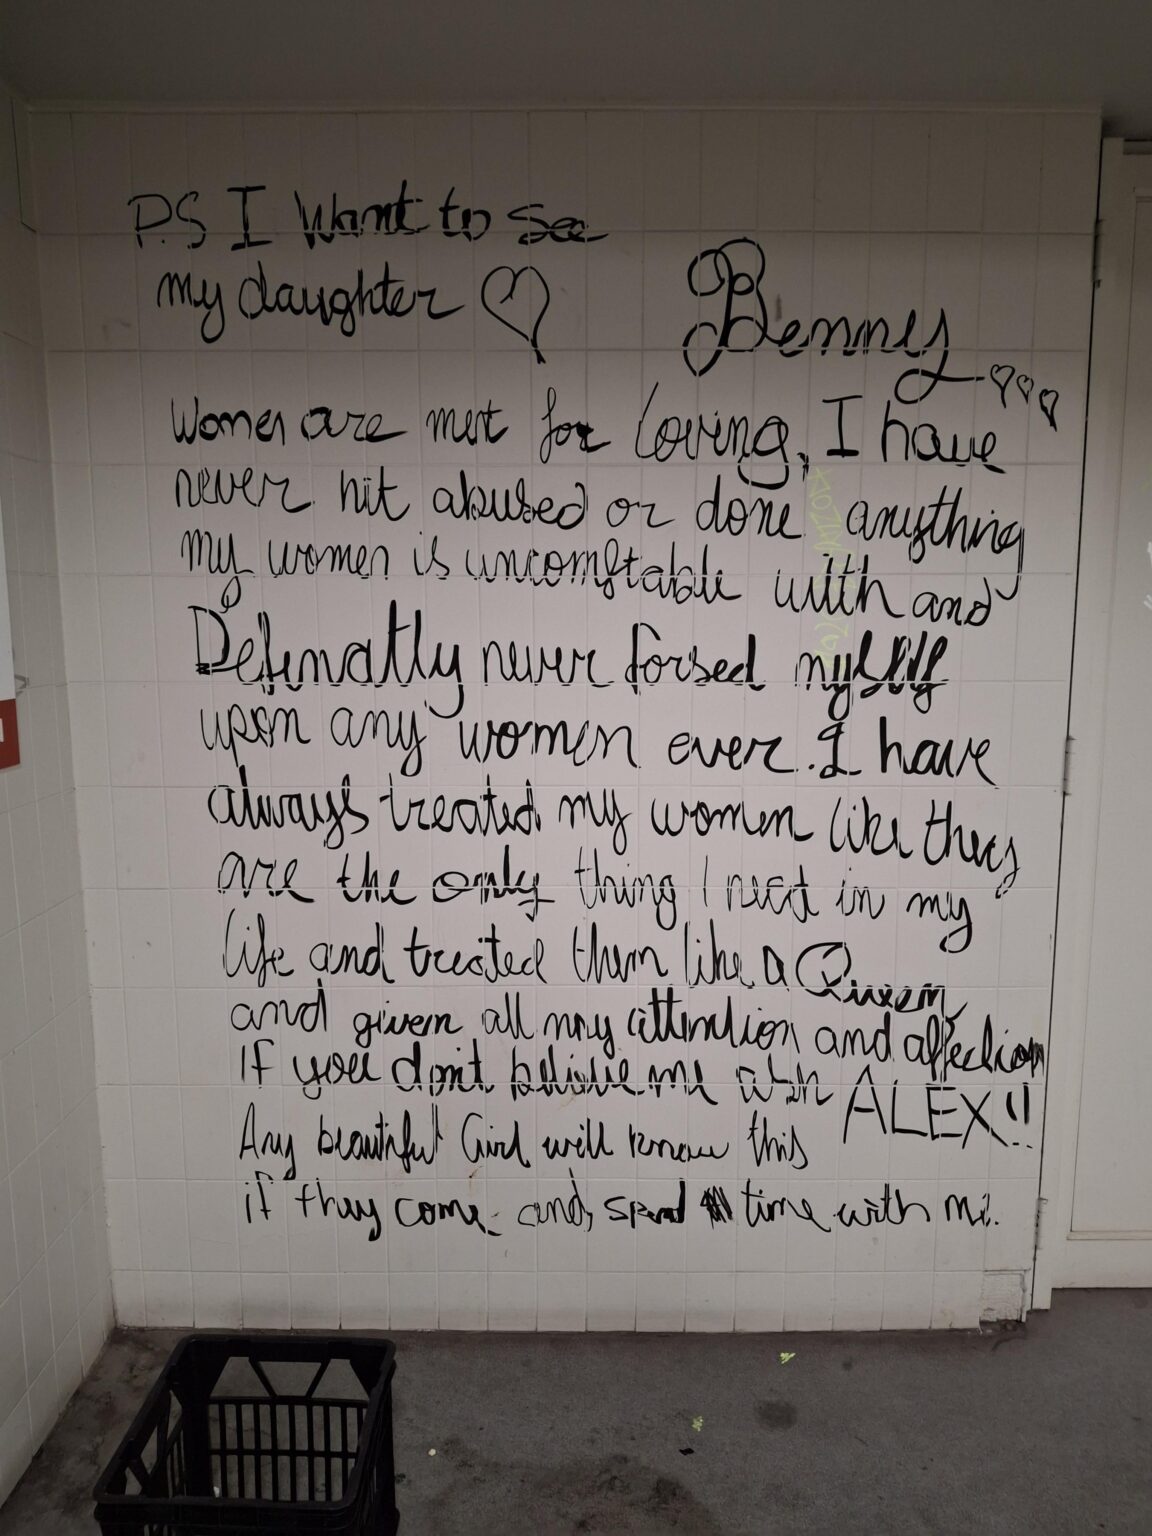 P.S I Want to See
my daughter
Benny
Women are ment for Loving, I have
never hit abused or done anything
my women is uncomftable with and
Definatly never forsed myself
upon any women ever. I have
always treated my women like they
are the only thing I need in my
life and treated them like a Queen
and given all my attention and affection
If you don't believe me ask ALEX!!
Any beautiful Girl will know this
if they come and spend time with me.